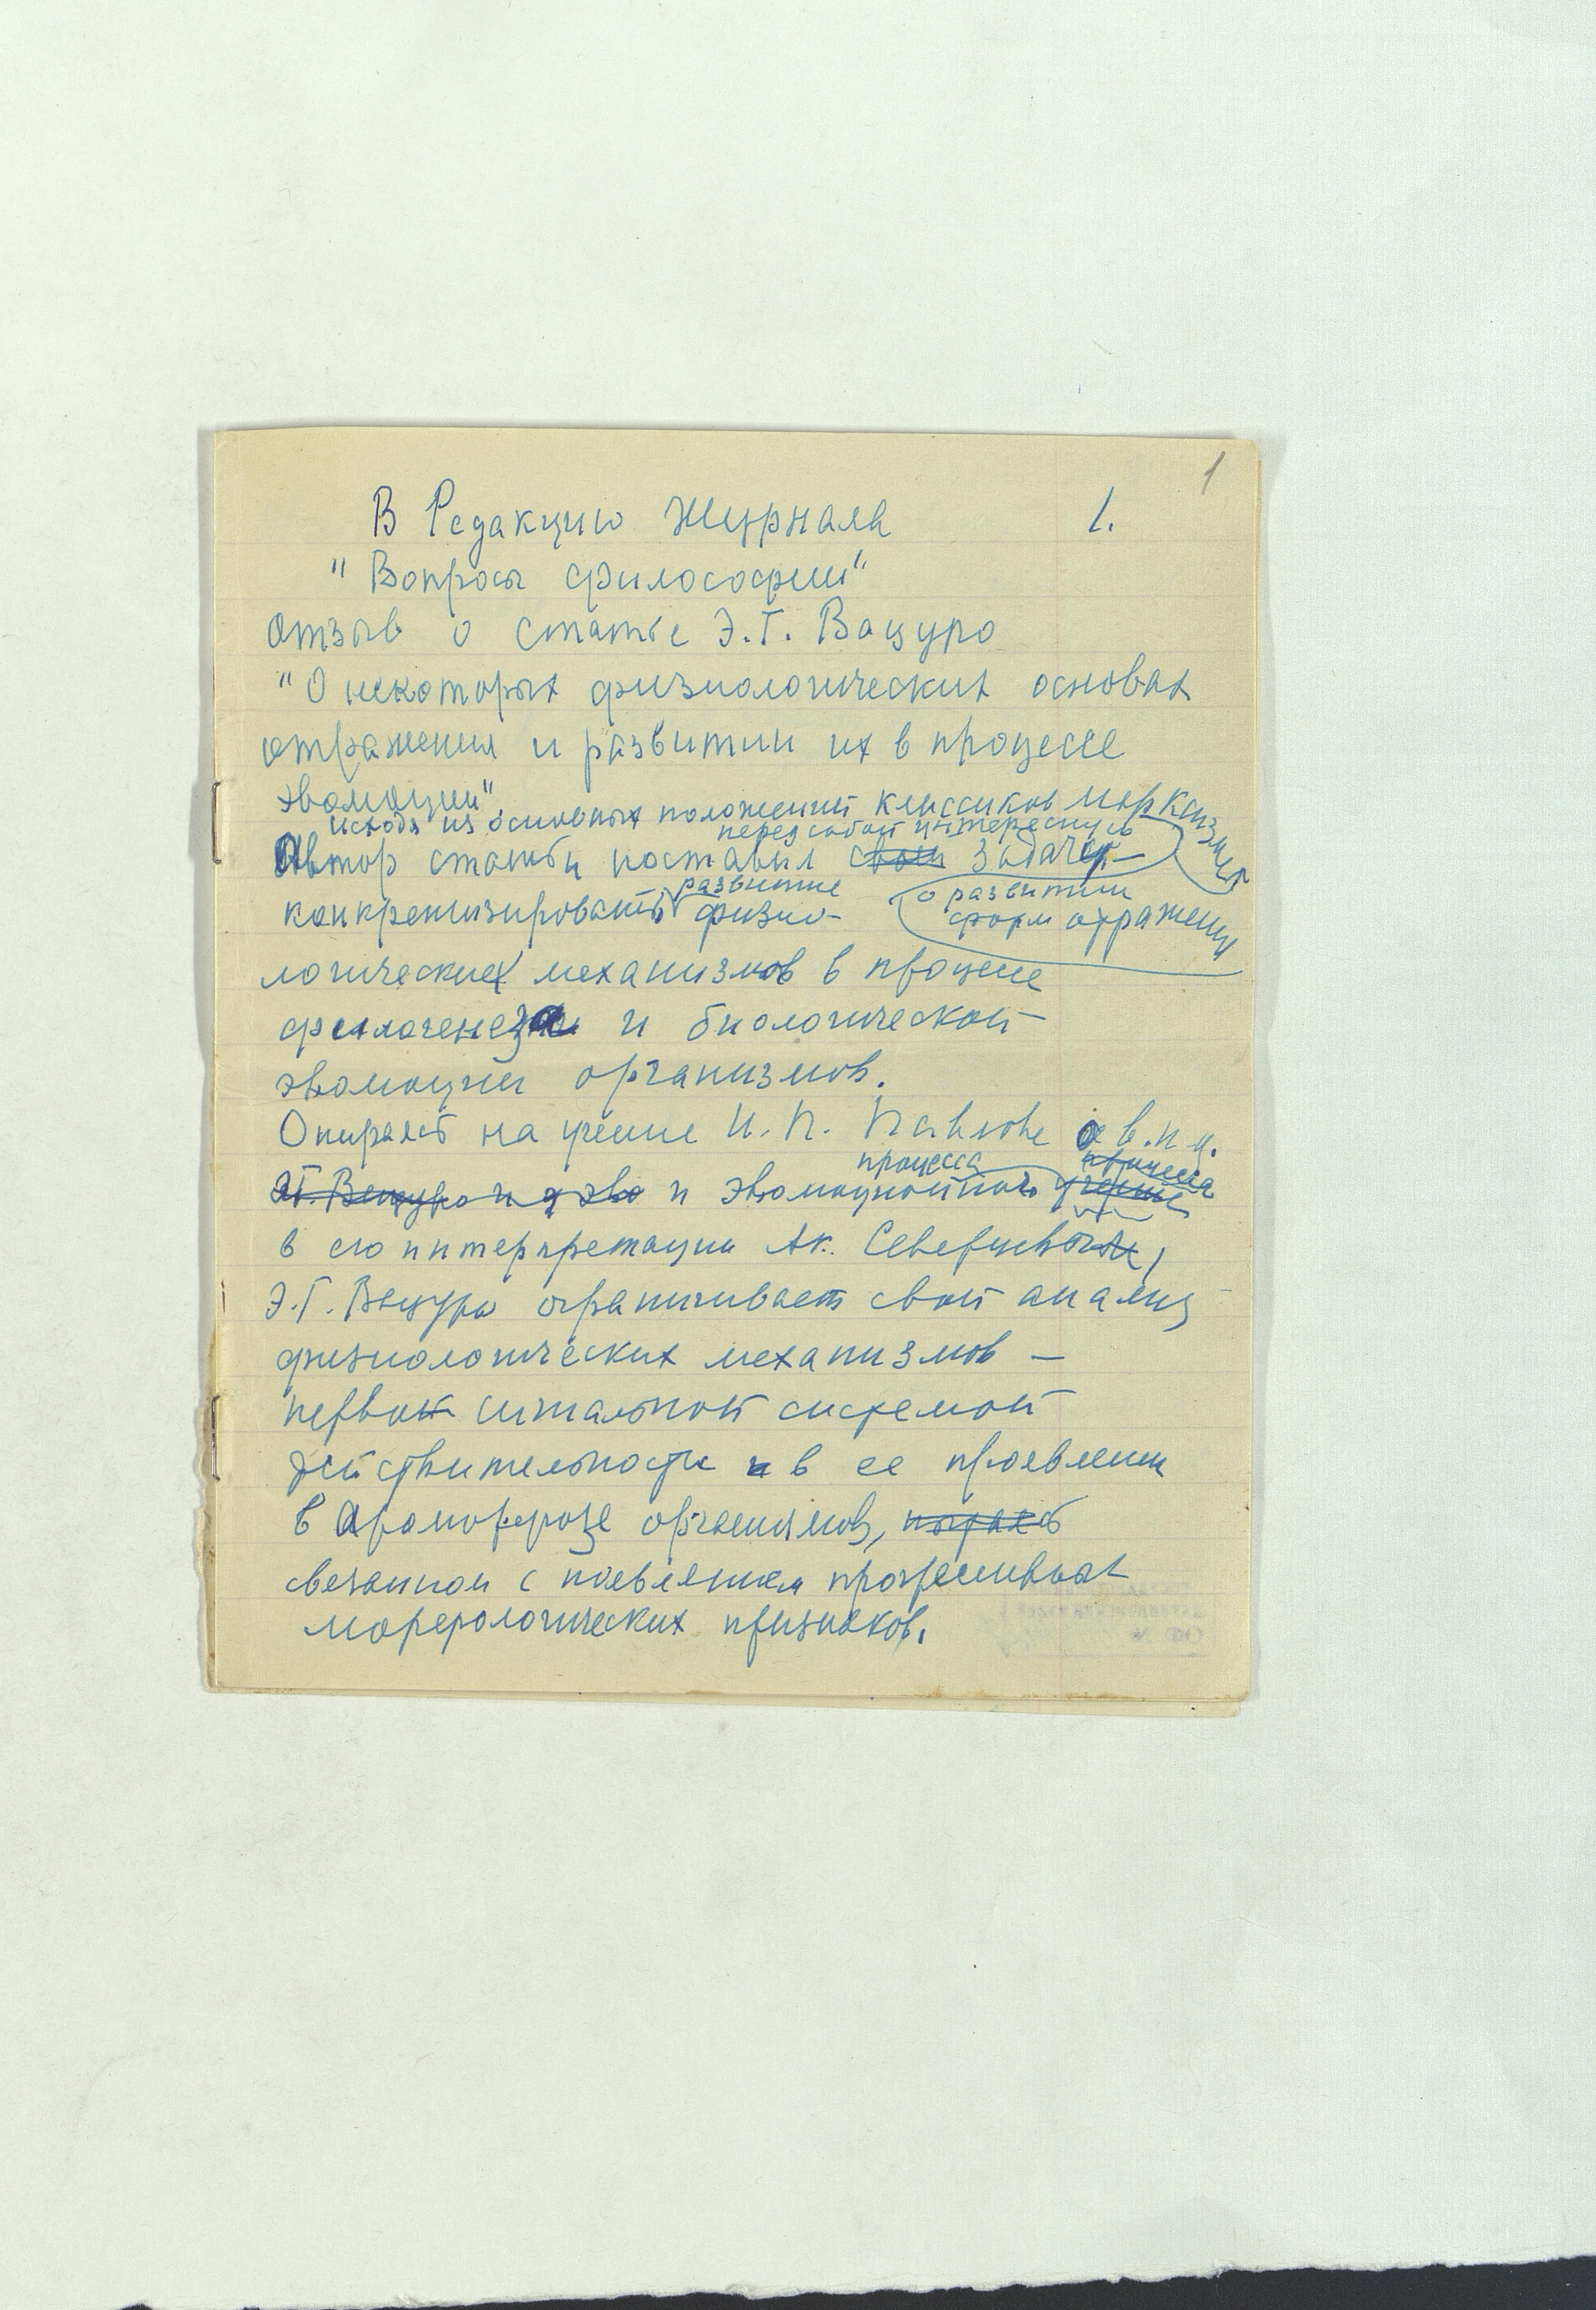 1
В Редакцию Журнала 1.
"Вопросы философии"
Отзыв о статье Э.Г. Вацуро
"О некоторых физиологических основах
отражения и развитии их в процессе
эволюции"
исходя из основных положений классиков марксизма
перед собой интересную
Автор статьи поставил свои задачу
развитие о развитии
конкретизировать физио- форм отражения
логических механизмов в процессе
филогенеза и биологической
эволюции организмов.
Опираясь на учение И.П. Павлова о в.н.д.
процесса процесса
Э.Г. Вацуро и эво и эволюционного учение
в его интерпретации Ак. Северцевом,
Э.Г. Вацуро ограничивает свой анализ
физиологических механизмов —
первой сигнальной системой
действительности и в ее проявлении
в Ароморфозе организмов,
связанном с появлением прогрессивных
морфологических признаков.